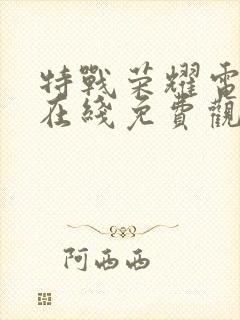 特戰荣耀電
在綫免費觀
阿西西